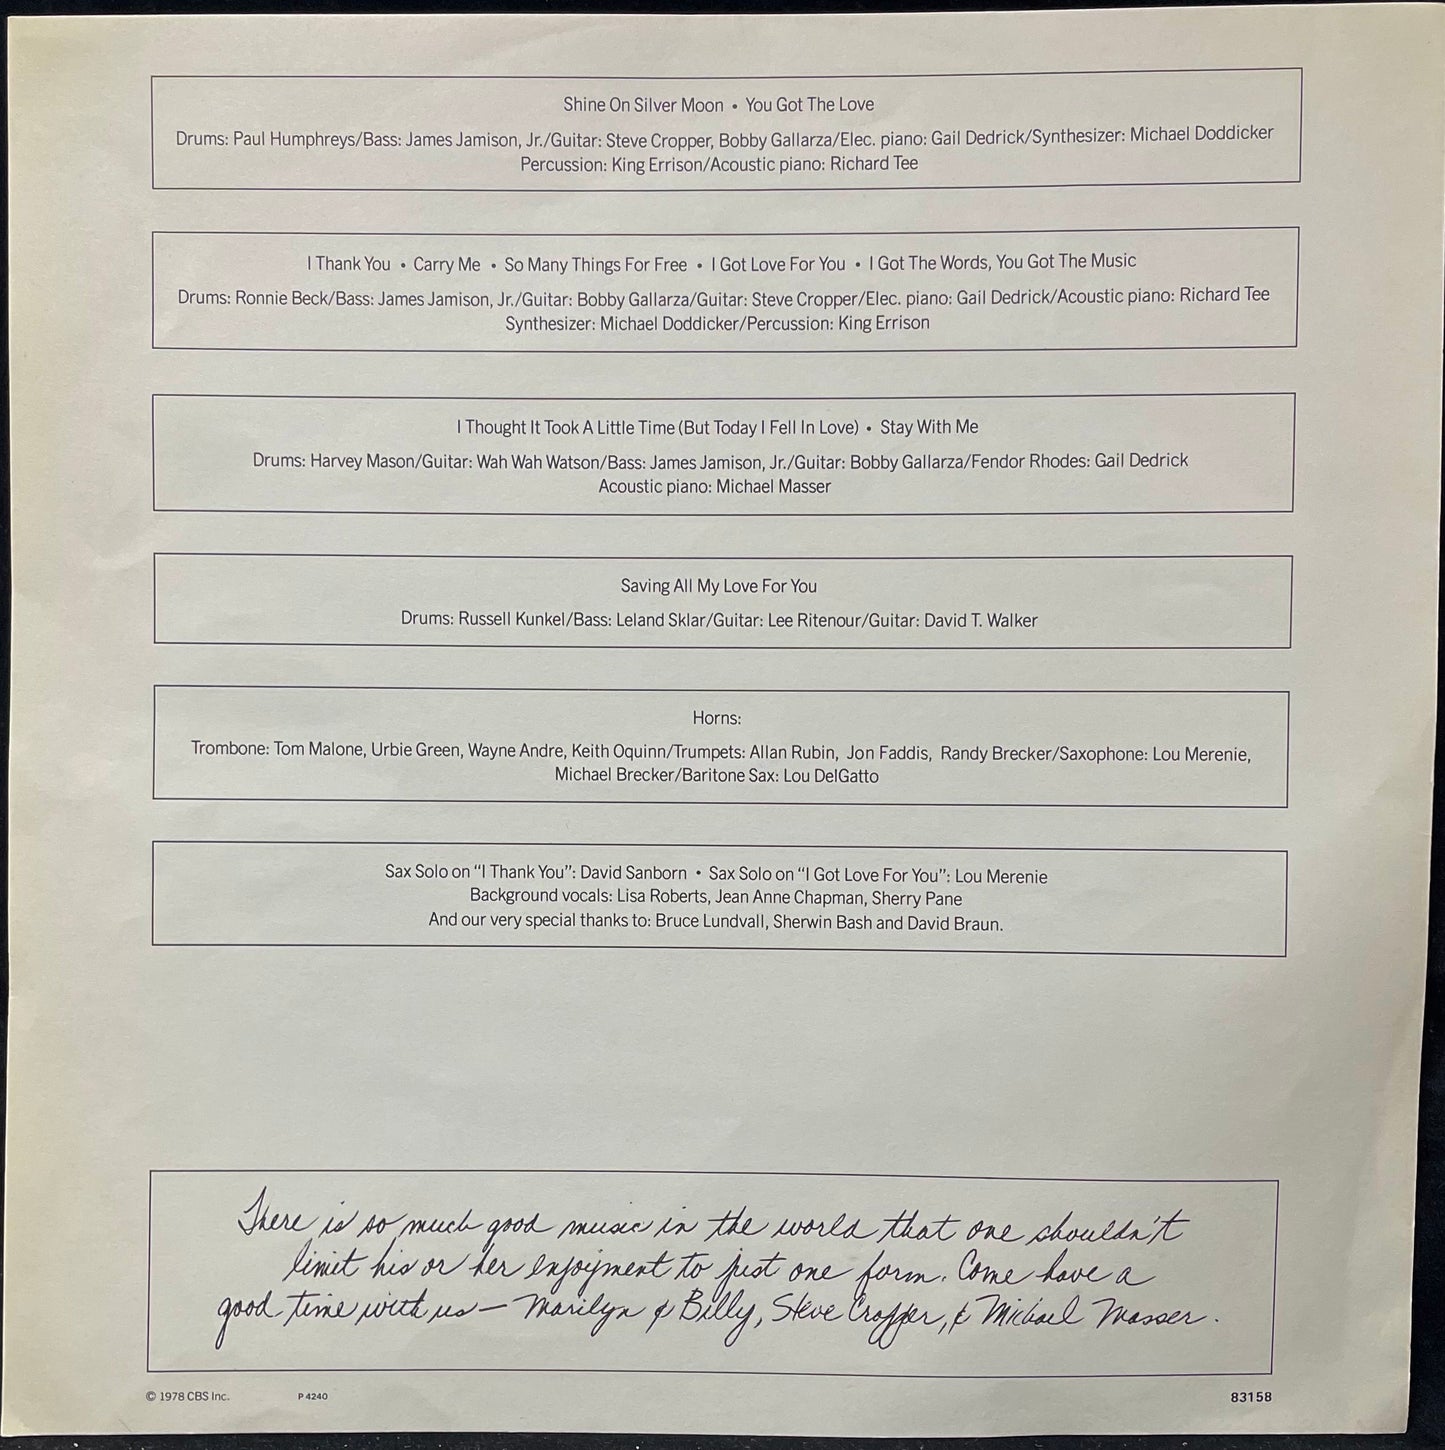 Shine On Silver Moon • You Got The Love
Drums: Paul Humphreys/Bass: James Jamison, Jr./Guitar: Steve Cropper, Bobby Gallarza/Elec. piano: Gail Dedrick/Synthesizer: Michael Doddicker
Percussion: King Errison/Acoustic piano: Richard Tee
I Thank You • Carry Me • So Many Things For Free • I Got Love For You • I Got The Words, You Got The Music
Drums: Ronnie Beck/Bass: James Jamison, Jr./Guitar: Bobby Gallarza/Guitar: Steve Cropper/Elec. piano: Gail Dedrick/Acoustic piano: Richard Tee
Synthesizer: Michael Doddicker/Percussion: King Errison
I Thought It Took A Little Time (But Today I Fell In Love) • Stay With Me
Drums: Harvey Mason/Guitar: Wah Wah Watson/Bass: James Jamison, Jr./Guitar: Bobby Gallarza/Fendor Rhodes: Gail Dedrick
Acoustic piano: Michael Masser
Saving All My Love For You
Drums: Russell Kunkel/Bass: Leland Sklar/Guitar: Lee Ritenour/Guitar: David T. Walker
Horns:
Trombone: Tom Malone, Urbie Green, Wayne Andre, Keith Oquinn/Trumpets: Allan Rubin, Jon Faddis, Randy Brecker/Saxophone: Lou Merenie,
Michael Brecker/Baritone Sax: Lou DelGatto
Sax Solo on "I Thank You": David Sanborn • Sax Solo on "I Got Love For You": Lou Merenie
Background vocals: Lisa Roberts, Jean Anne Chapman, Sherry Pane
And our very special thanks to: Bruce Lundvall, Sherwin Bash and David Braun.
There is so much good music in the world that one shouldn't
limit his or her enjoyment to just one form. Come have a
good time with us — Marilyn & Billy, Steve Cropper, & Michael Masser.
© 1978 CBS Inc. P 4240 83158